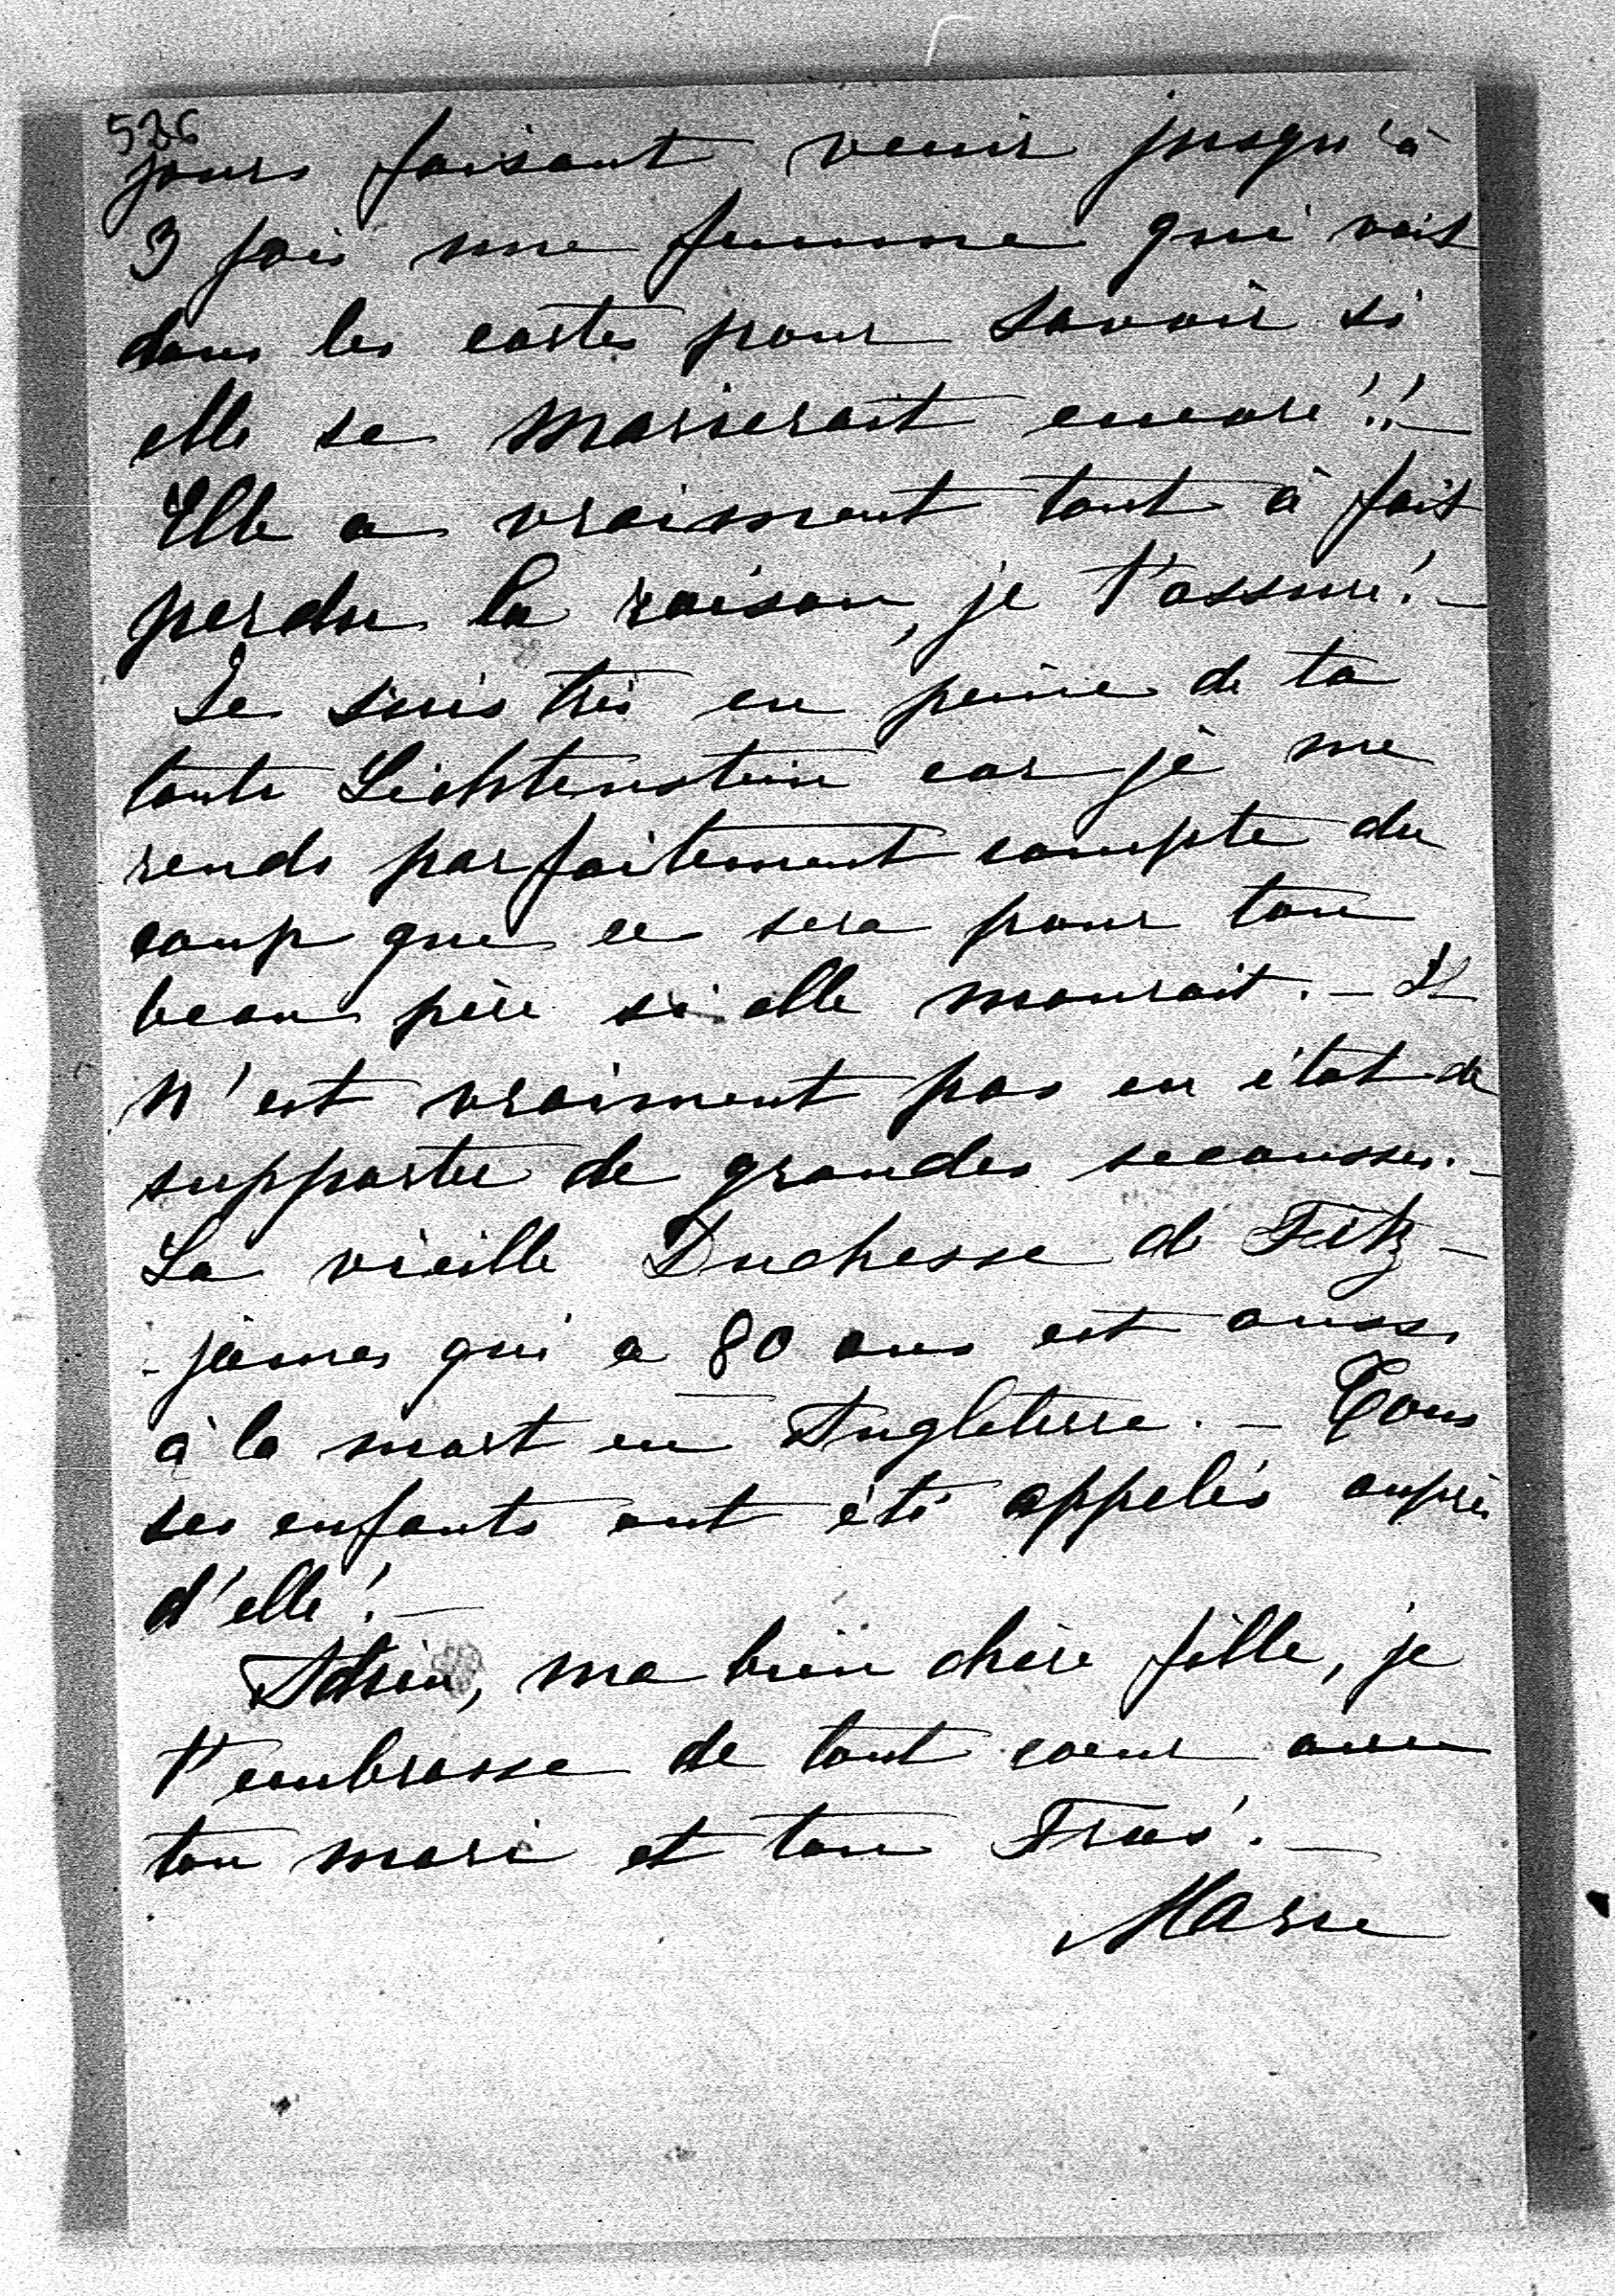 526
jours faisant venir jusqu'à
3 fois une femme qui voit
dans les cartes pour savoir si
elle se marierait encore!!_
Elle a vraiment tout à fait
perdu la raison, je t'assure!_
Je suis très en peine de ta
tante Lichtenstein car je me
rends parfaitement compte du
coup que ce sera pour ton
beau père si elle mourait._ Il
n'est vraiment pas en état de
supporter de grandes secousses._
La vieille Duchesse de Fitz-
-james qui a 80 ans est aussi
à la mort en Angleterre._ Tous
ses enfants ont été appelés auprès
d'elle!_
Adieu, ma bien chère fille, je
t'embrasse de tout coeur avec
ton mari et ton
Marie